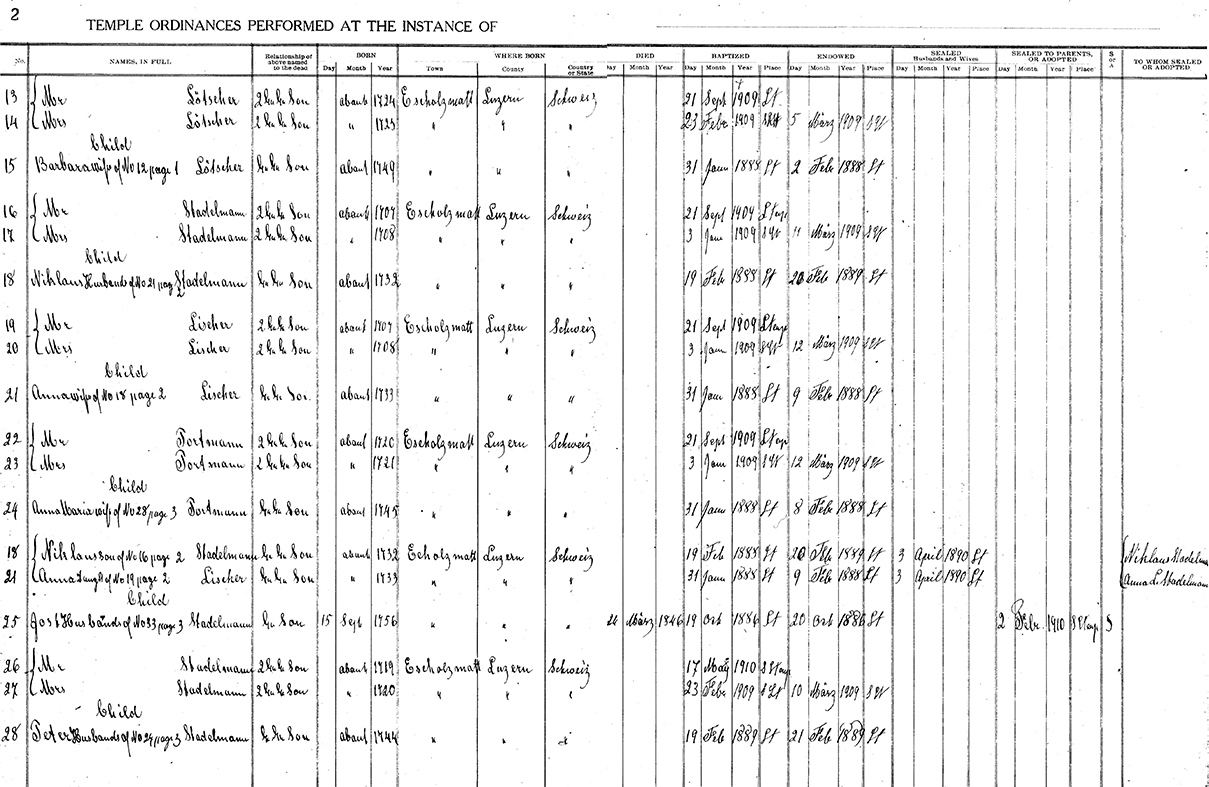 2
TEMPLE ORDINANCES PERFORMED AT THE INSTANCE OF
No. NAMES, IN FULL Relationship of above named to the dead BORN Day Month Year WHERE BORN Town County Country or State DIED Day Month Year BAPTIZED Day Month Year Place ENDOWED Day Month Year Place SEALED Husbands and Wives Day Month Year Place SEALED TO PARENTS, OR ADOPTED Day Month Year Place S or A TO WHOM SEALED OR ADOPTED
13 { Mr Lötscher 2 Gr Gr Son about 1724 Escholzmatt Luzern Schweiz 21 Sept 1909 St.
14 { Mrs Lötscher 2 Gr Gr Son " 1725 " " " 23 Febr 1909 5 März 1909
Child
15 Barbara wife of No 12 page 1 Lötscher Gr Gr Son about 1749 " " " 31 Janu 1888 St 2 Feb 1888 St
16 { Mr Stadelmann 2 Gr Gr Son about 1707 Escholzmatt Luzern Schweiz 21 Sept 1909
17 { Mrs Stadelmann 2 Gr Gr Son " 1708 " " " 3 Janu 1909 11 März 1909
Child
18 Niklaus Husband of No 21 page 2 Stadelmann Gr Gr Son about 1732 " " " 19 Feb 1888 St 20 Feb 1889 St
19 { Mr Lischer 2 Gr Gr Son about 1707 Escholzmatt Luzern Schweiz 21 Sept 1909
20 { Mrs Lischer 2 Gr Gr Son " 1708 " " " 3 Janu 1909 12 März 1909
Child
21 Anna wife of No 18 page 2 Lischer Gr Gr Son about 1733 " " " 31 Janu 1888 St 9 Feb 1888 St
22 { Mr Portmann 2 Gr Gr Son about 1720 Escholzmatt Luzern Schweiz 21 Sept 1909
23 { Mrs Portmann 2 Gr Gr Son " 1721 " " " 3 Janu 1909 12 März 1909
Child
24 Anna Maria wife of No 28 page 3 Portmann Gr Gr Son about 1745 " " " 31 Janu 1888 St 8 Feb 1888 St
18 { Niklaus Son of No 16 page 2 Stadelmann Gr Gr Son about 1732 Echolzmatt Luzern Schweiz 19 Feb 1888 St 20 Feb 1889 St 3 April 1890 St { Niklaus Stadelm
21 { Anna of No 19 page 2 Lischer Gr Gr Son " 1733 " " " 31 Janu 1888 St 9 Feb 1888 St 3 April 1890 St Anna L. Stadelmann
Child
25 Jost Husband of No 33 page 3 Stadelmann Gr Son 15 Sept 1756 " " " März 1846 19 Oct 1886 St 20 Oct 1886 St 2 Febr 1910 S
26 { Mr Stadelmann 2 Gr Gr Son about 1719 Escholzmatt Luzern Schweiz 17 May 1910
27 { Mrs Stadelmann 2 Gr Gr Son " 1720 " " " 23 Febr 1909 10 März 1909
Child
28 Peter Husband of No 24 page 3 Stadelmann Gr Gr Son about 1744 " " " 19 Feb 1889 St 21 Feb 1889 St